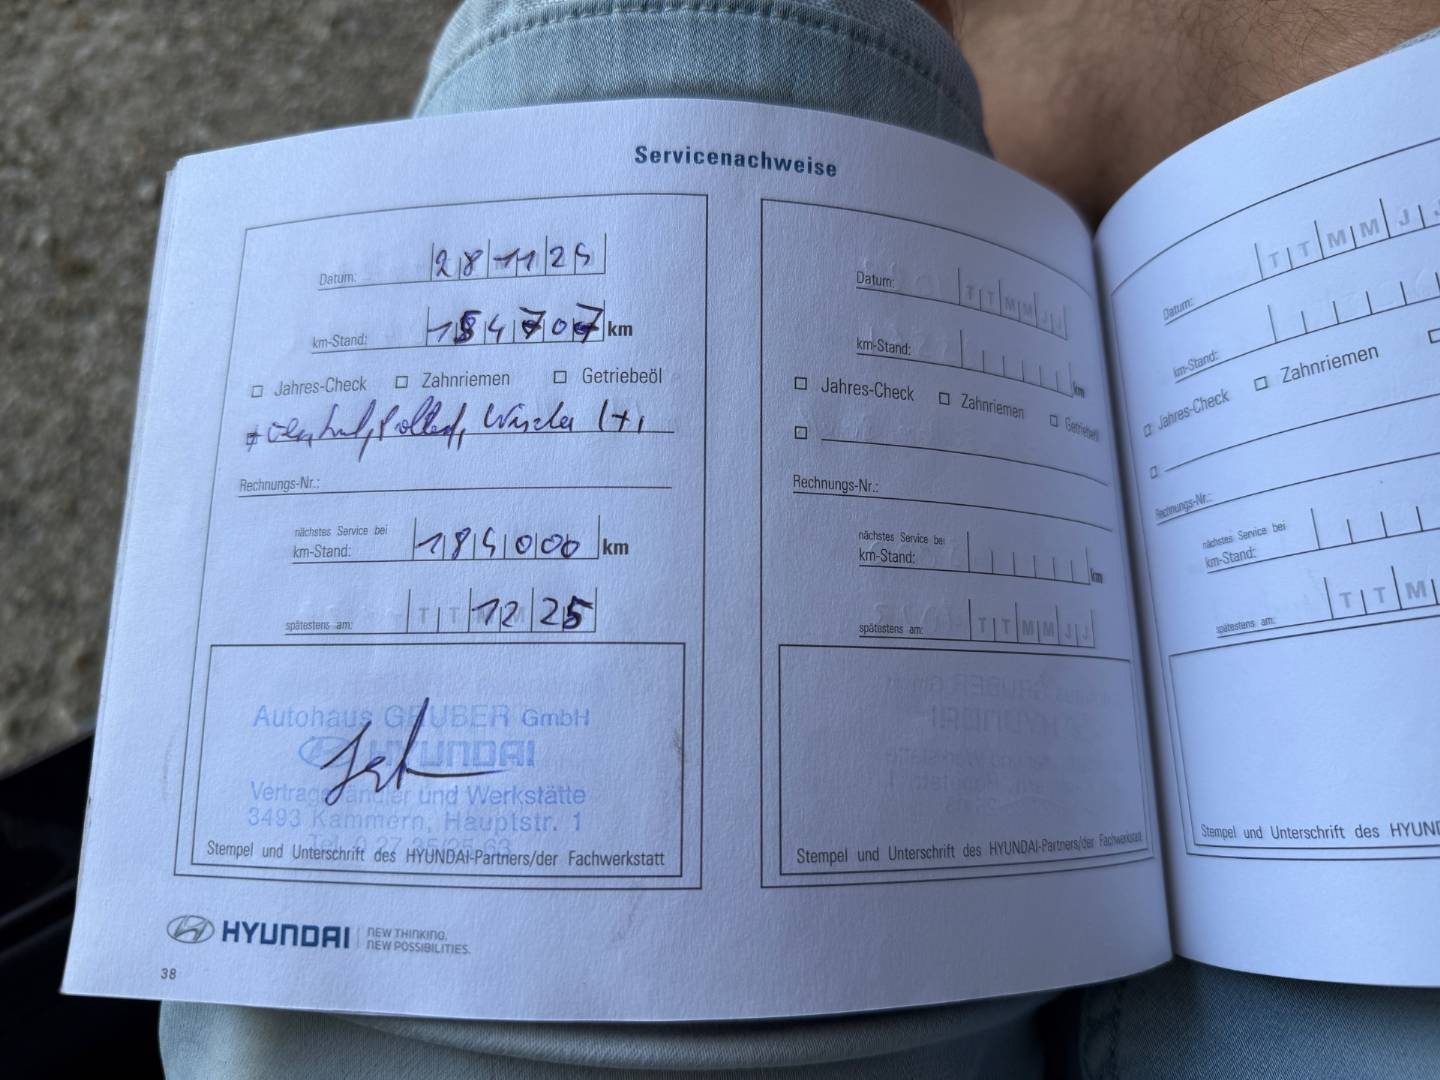 Servicenachweise
Datum: 28 11 25
km-Stand: 154707 km
Jahres-Check Zahnriemen Getriebeöl
Rechnungs-Nr.:
nächstes Service bei
km-Stand: 184000 km
spätestens am: T T 12 25
Autohaus GRUBER GmbH
HYUNDAI
Vertragshändler und Werkstätte
3493 Kammern, Hauptstr. 1
Stempel und Unterschrift des HYUNDAI-Partners/der Fachwerkstatt
HYUNDAI NEW THINKING.
NEW POSSIBILITIES.
38
Datum: T T M M J J
km-Stand: km
Jahres-Check Zahnriemen Getriebeöl
Rechnungs-Nr.:
nächstes Service bei
km-Stand: km
spätestens am: T T M M J J
Stempel und Unterschrift des HYUNDAI-Partners/der Fachwerkstatt
Datum: T T M M J
km-Stand:
Jahres-Check Zahnriemen
Rechnungs-Nr.:
nächstes Service bei
km-Stand:
spätestens am: T T M
Stempel und Unterschrift des